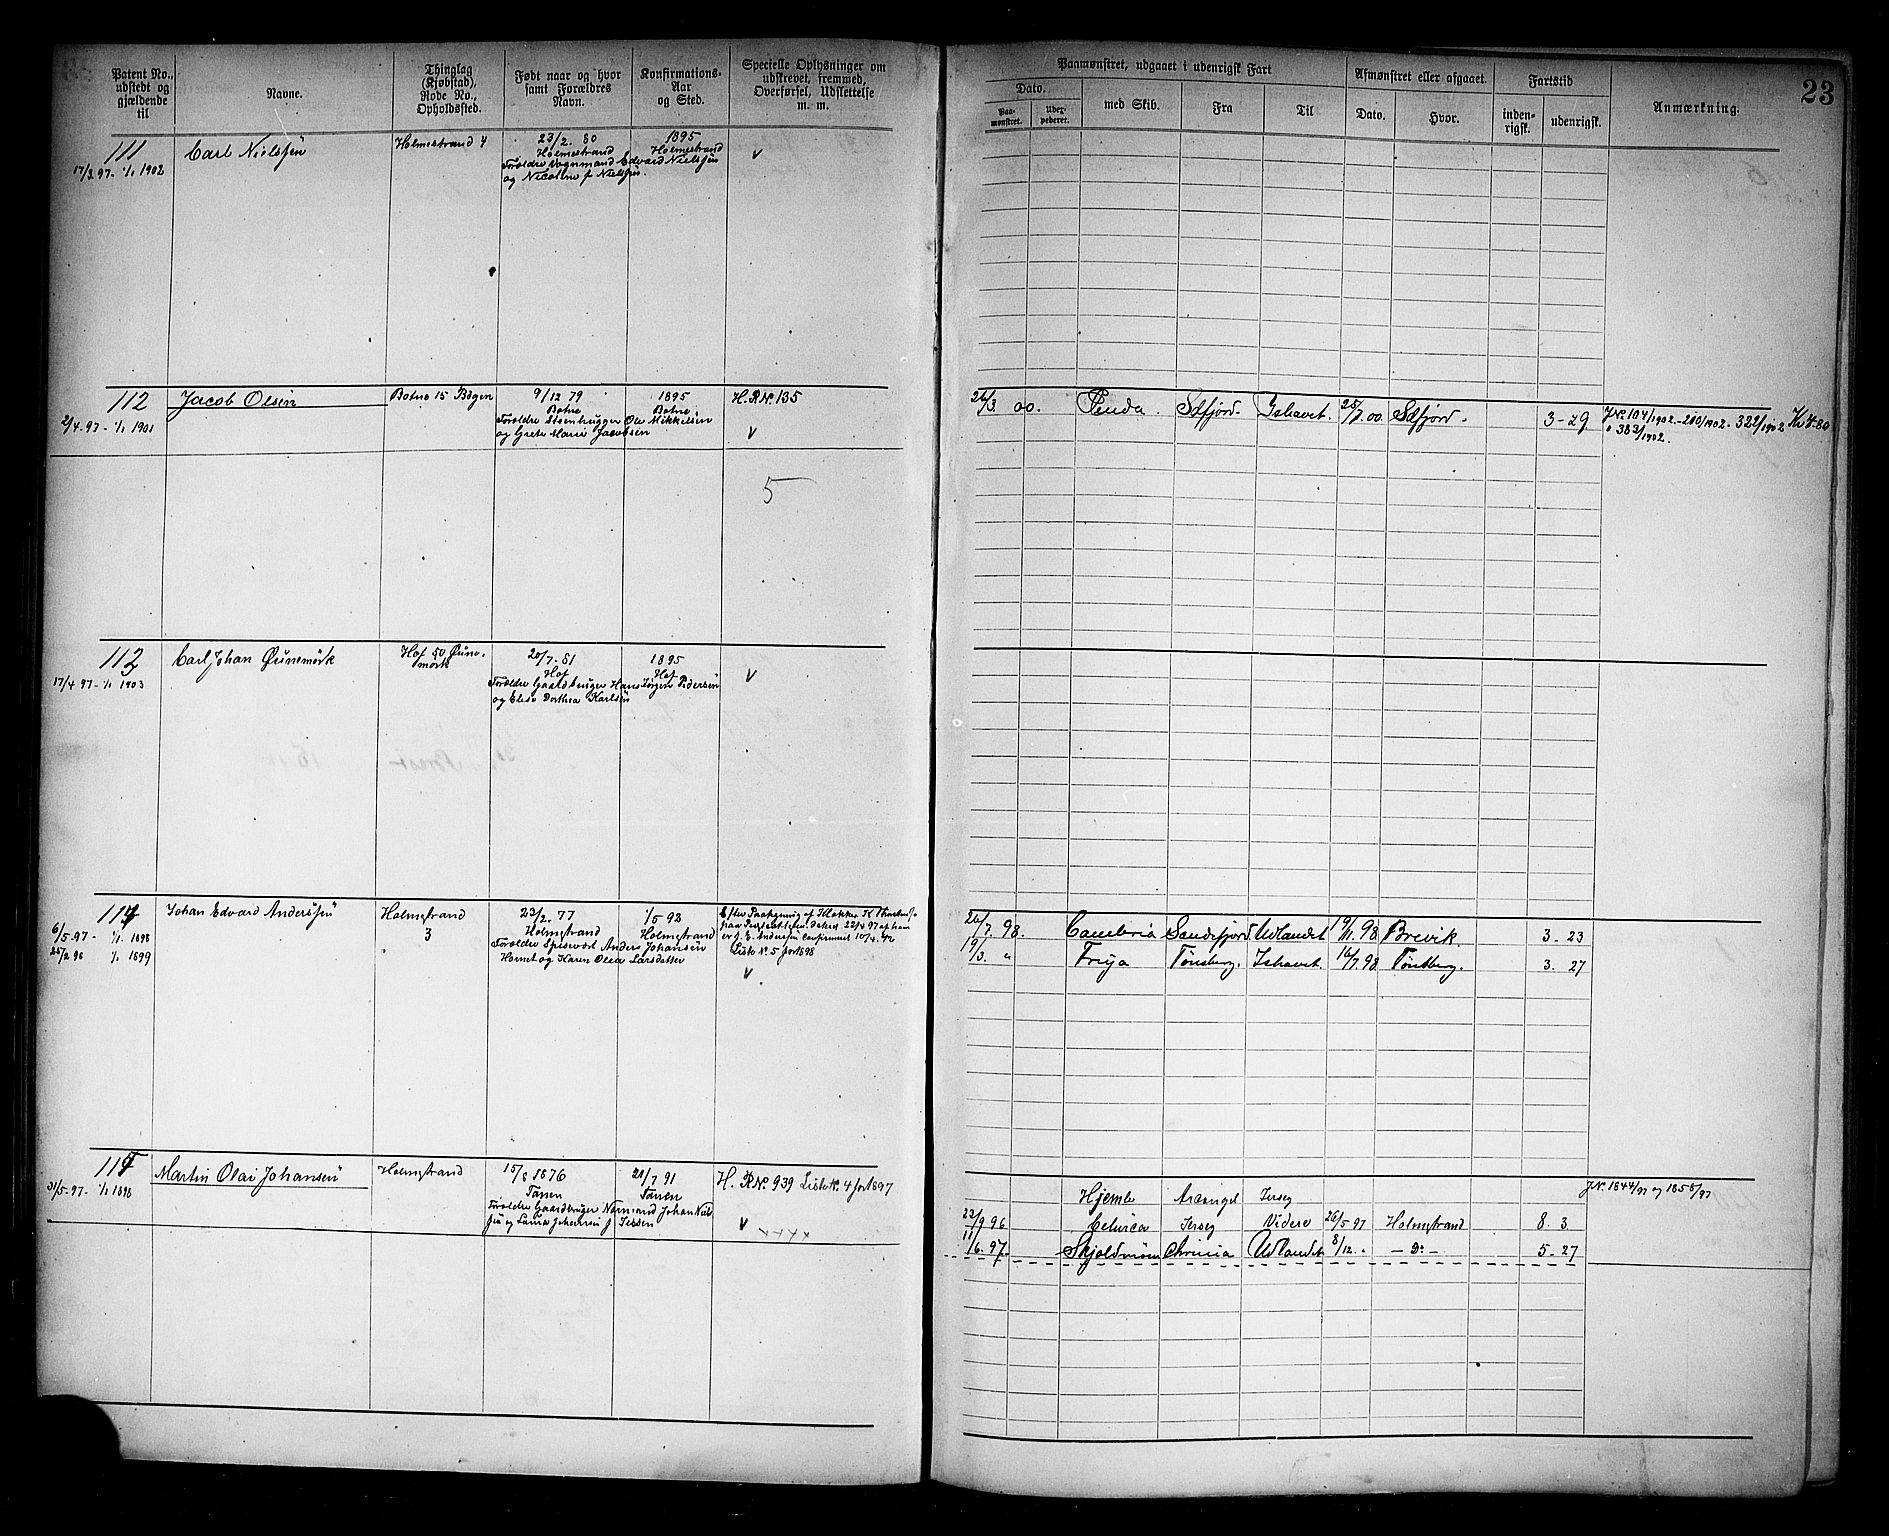 Patent No., udstedt og gjældende til
Navne.
Thinglag (Kjøbstad), Rode No., Opholdssted.
Født naar og hvor samt Forældres Navn.
Konfirmations-Aar og Sted.
Specielle Oplysninger om udskrevet, fremmed, Overførsel, Udslettelse m. m.
Paamønstret, udgaaet i udenrigsk Fart
Afmønstret eller afgaaet.
Fartstid
Anmærkning.
23
Dato.
Paamønstret.
med Skib.
Fra
Til
Dato.
Hvor.
indenrigsk.
udenrigsk.
111
17/3 97 - 1/1 1902
Carl Nielssen
Holmestrand 4
23/2. 80
Holmestrand
Forældre Vognmand Edvard Nielssen
og Nicoline f Nielssen.
1895
Holmestrand
V
112
2/4-97 - 1/1 1901
Jacob Olsen
Botne 15 Bøgen
9/12 79
Botne
Forældre Stenhugger Ole Mikkelsen
og Grete Marie Jacobsen
1895
Botne
H.R.No. 135
V
5
26/3. 00.
Penda.
Sdfjord.
Ishavet.
25/7. 00.
Sdfjord.
3-29
J.No. 104/1902 - 280/1902 - 322/1902 Kr 4-80
o 383/1902.
112
17/4 97 - 1/1 1903
Carl Johan Øunemork
Hof 50 Øunemork
20/7. 81
Hof
Forældre Gaardbruger Hans Jørgen Pedersen
og Elise Dorthea Karlsen
1895
Hof
V
114
6/5-97 - 1/1 1898
1/1 1899
Johan Edvard Anderssen
Holmstrand
3
23/2. 77
Holmstrand
Forældre Anders Johansen
og Karen Olea Larsdatter
1/5 92
Holmstrand
Liste No. 5 for 1898
V
26/7. 98.
Cambria
Sandefjord.
Udlandet
19/11. 98
Brevik.
3. 23
19/3. "
Freya
Tønsberg.
Ishavet.
16/7. 98
Tønsberg.
3. 27
115
31/5-97 - 1/1 1898
Martin Olai Johansen
Holmstrand
15/8 1876
Forældre Gaardbruger Normand Johan
91
H. R No. 939 Liste No. 4 for 1897
V
××××
Hjemlo
Arcangel
Jersey
J.No. 1844/97 og 1858/97
22/9 96
Jersey
Videre
26/5 97
Holmstrand
8. 3
11/6. 97.
Skjoldmøen
Chrinia
Udlandet
8/12. "
- Do -
5 - 27